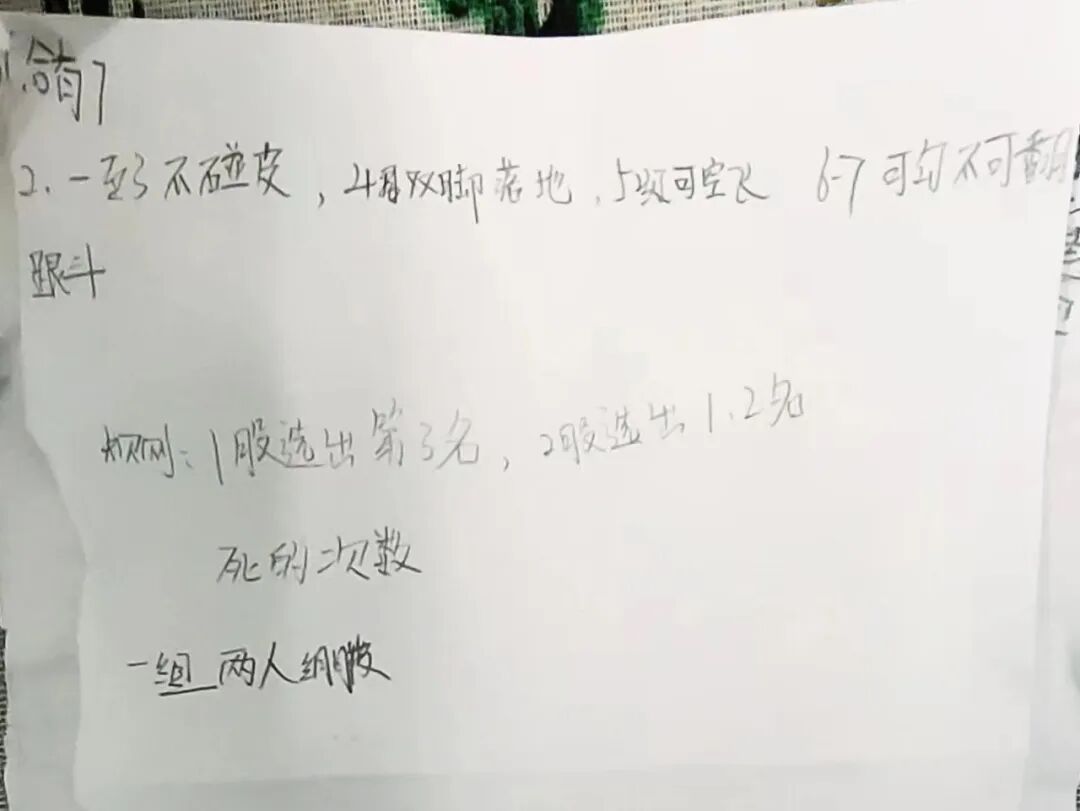 2. 一至3不碰皮，4级双脚落地，5级可空飞 6-7可勾不可翻
跟斗
规则：1股选出第3名，2股选出1.2名
死的次数
一组 两人绷